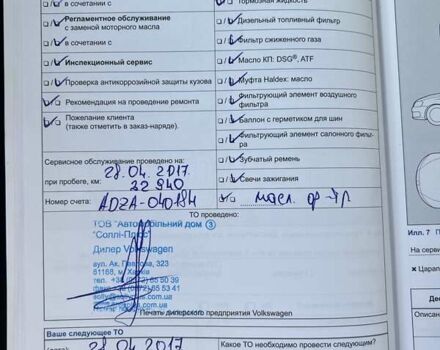 в сочетании с
Регламентное обслуживание
с заменой моторного масла
в сочетании с
Инспекционный сервис
Проверка антикоррозийной защиты кузова
Рекомендация на проведение ремонта
Пожелание клиента
(также отметить в заказ-наряде).
Тормозная жидкость
Дизельный топливный фильтр
Фильтр сжиженного газа
Масло КП: DSG®, ATF
Муфта Haldex: масло
Фильтрующий элемент воздушного
фильтра
Баллон с герметиком для шин
Фильтрующий элемент салонного фильт-
ра
Зубчатый ремень
Свечи зажигания
масл. ф-тр
Сервисное обслуживание проведено на:
28.04.2017
при пробеге, км: 22 940
Номер счета: ADZA-040184
ТО проведено:
ТОВ "Автомобільний дім 3
"Соллі-Плюс"
Дилер Volkswagen
вул. Ак. Павлова, 323
61168, м. Харків
Печать дилерского предприятия Volkswagen
Ваше следующее ТО
28 04 2017
Какое ТО необходимо провести следующим?
Илл. 7
На серви
Царап
Дес
Описан